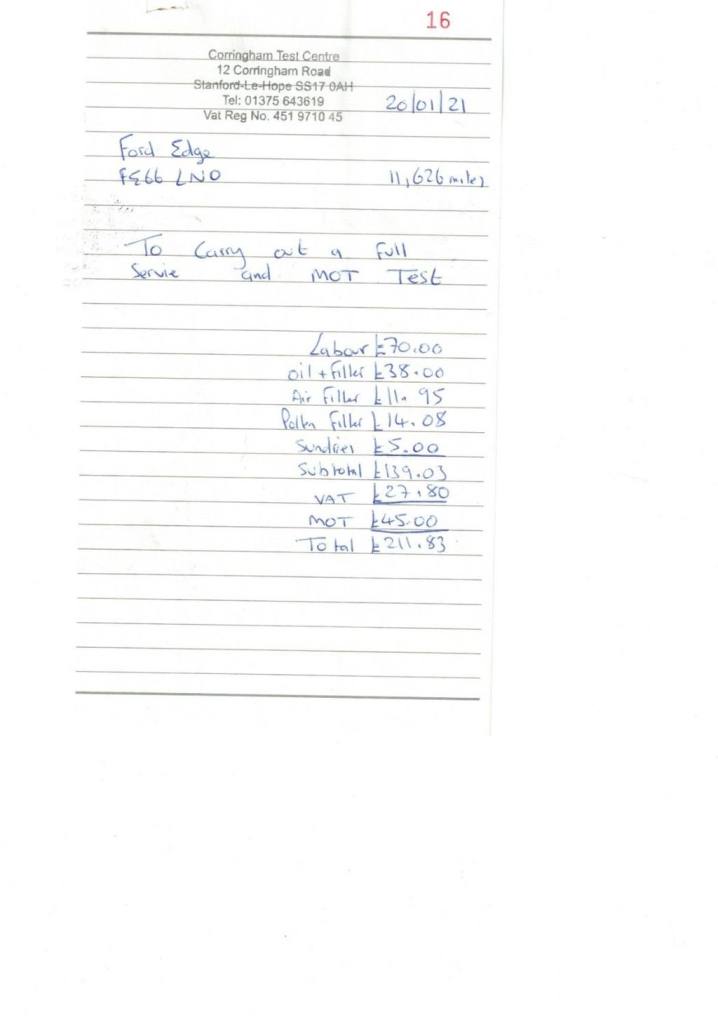 16
Corringham Test Centre
12 Corringham Road
Stanford-Le-Hope SS17 0AH
Tel: 01375 643619
Vat Reg No. 451 9710 45
20/01/21
Ford Edge
FE66 LNO 11,626 miles
To Carry out a full
Servie and MOT Test
Labour £70.00
oil + filter £38.00
Air filter £11.95
Pollen filter £14.08
Sundries £5.00
Subtotal £139.03
VAT £27.80
MOT £45.00
Total £211.83